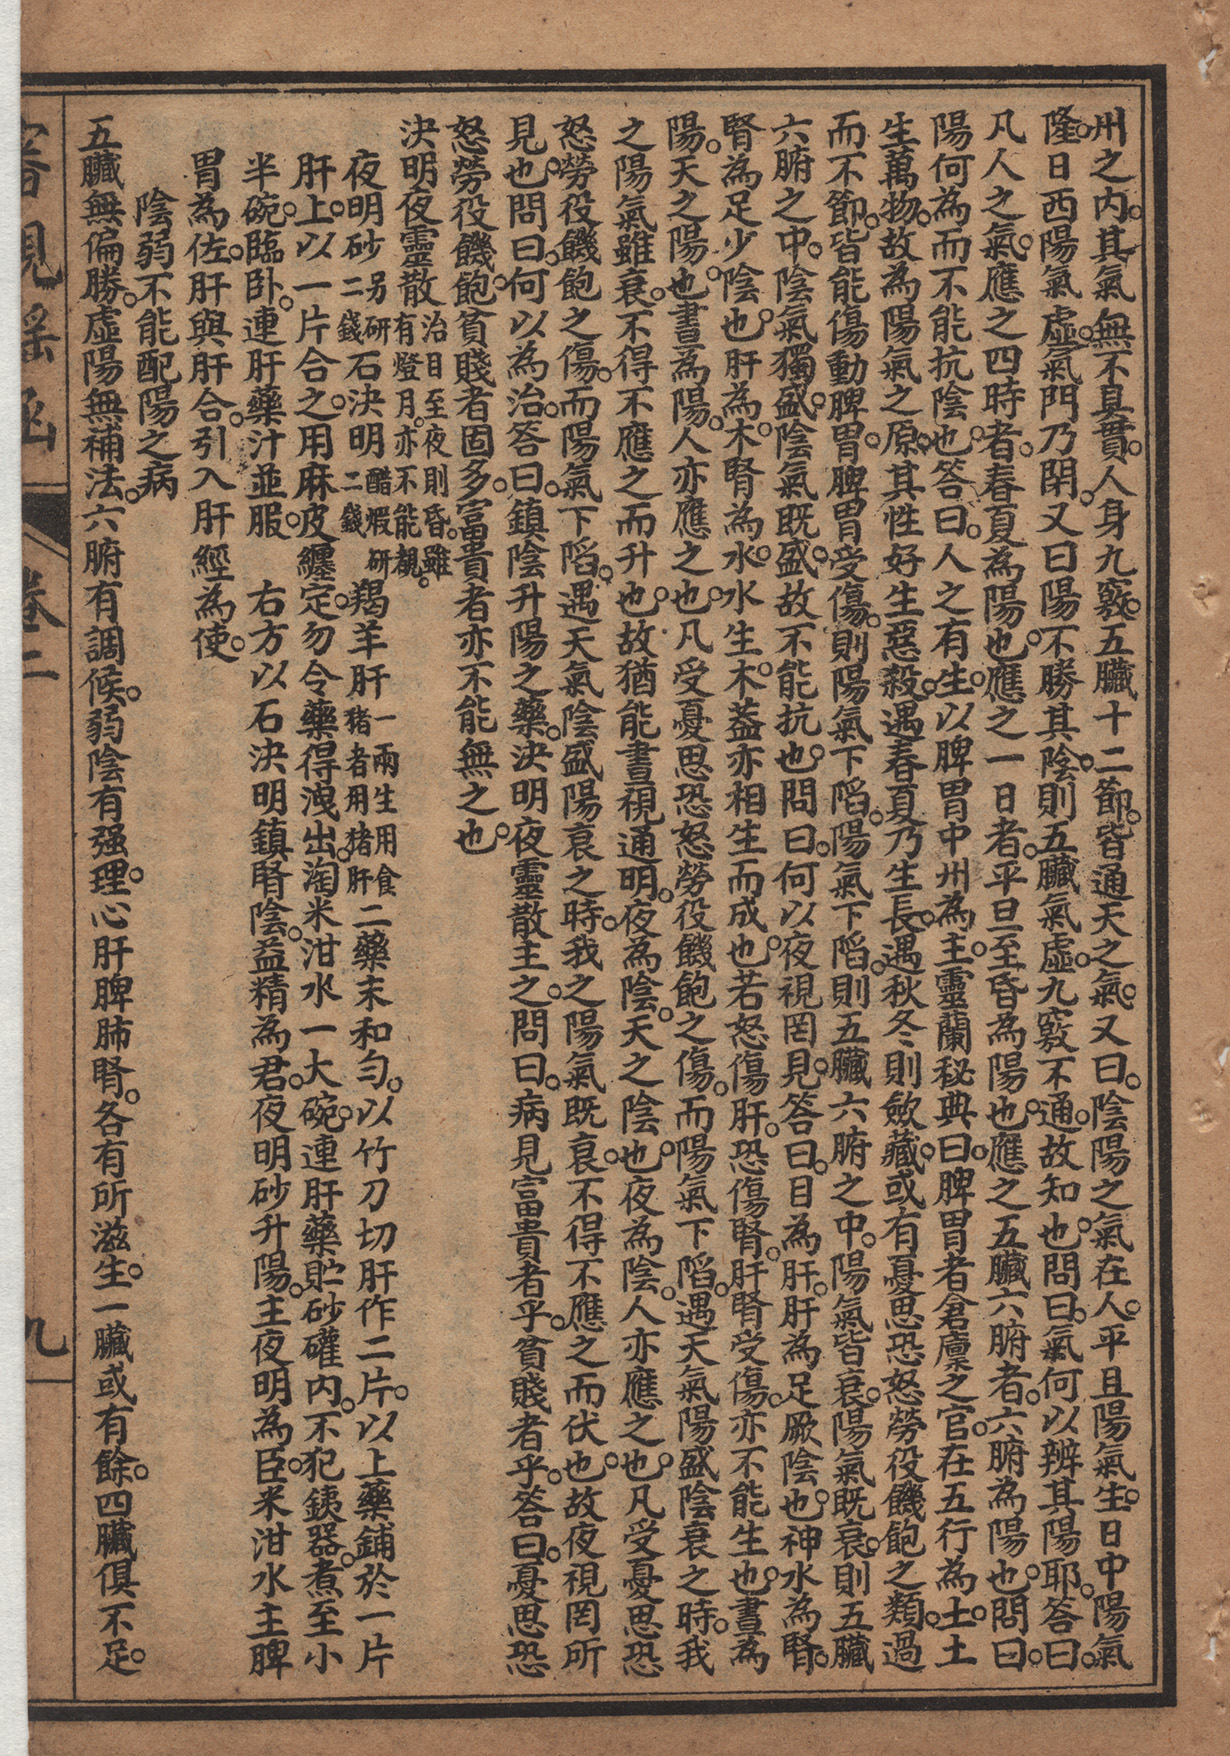 州之内。其氣無不貫。人身九竅。五臟十二節。皆通天之氣。又曰。陰陽之氣在人。平旦陽氣生。日中陽氣
隆。日西陽氣虛。氣門乃閉。又曰陽不勝其陰。則五臟氣虛。九竅不通。故知也。問曰。氣何以辨其陽耶。答曰。
凡人之氣。應之四時者。春夏為陽也。應之一日者。平旦至昏為陽也。應之五臟六腑者。六腑為陽也。問曰。
陽何為而不能抗陰也。答曰。人之有生。以脾胃中州為主。靈蘭秘典曰。脾胃者倉廩之官。在五行為土。土
生萬物。故為陽氣之原。其性好生惡殺。遇春夏乃生長。遇秋冬則斂藏。或有憂思恐怒勞役饑飽之類。過
而不節。皆能傷動脾胃。脾胃受傷。則陽氣下陷。陽氣下陷。則五臟六腑之中。陽氣皆衰。陽氣既衰。則五臟
六腑之中。陰氣獨盛。陰氣既盛。故不能抗也。問曰。何以夜視罔見。答曰。目為肝。肝為足厥陰也。神水為腎。
腎為足少陰也。肝為木。腎為水。水生木。蓋亦相生而成也。若怒傷肝。恐傷腎。肝腎受傷。亦不能生也。晝為
陽。天之陽也。晝為陽。人亦應之也。凡受憂思恐怒勞役饑飽之傷。而陽氣下陷。遇天氣陽盛陰衰之時。我
之陽氣雖衰。不得不應之而升也。故猶能晝視通明。夜為陰。天之陰也。夜為陰。人亦應之也。凡受憂思恐
怒勞役饑飽之傷。而陽氣下陷。遇天氣陰盛陽衰之時。我之陽氣既衰。不得不應之而伏也。故夜視罔所
見也。問曰。何以為治。答曰。鎮陰升陽之藥。決明夜靈散主之。問曰。病見富貴者乎。貧賤者乎。答曰。憂思恐
怒勞役饑飽。貧賤者固多。富貴者亦不能無之也。
決明夜靈散 治目至夜則昏。雖有燈月。亦不能覩。
夜明砂 另研二錢 石決明 醋煆研二錢 羯羊肝 一兩生用食猪者用猪肝 二藥末和勻。以竹刀切肝作二片。以上藥鋪於一片
肝上。以一片合之。用麻皮纏定。勿令藥得洩出。淘米泔水一大碗。連肝藥貯砂礶内。不犯銕器。煮至小
半碗。臨卧。連肝藥汁並服。 右方以石決明鎮腎陰。益精為君。夜明砂升陽。主夜明為臣。米泔水主脾
胃為佐。肝與肝合。引入肝經為使。
陰弱不能配陽之病
五臟無偏勝。虛陽無補法。六腑有調候。弱陰有强理。心肝脾肺腎。各有所滋生。一臟或有餘。四臟俱不足。
卷二
九